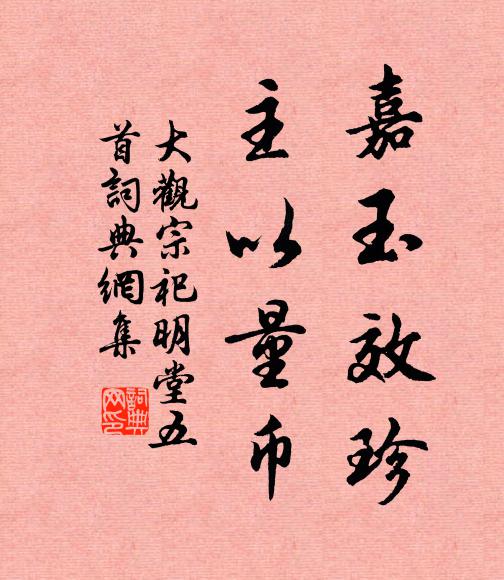 嘉玉效珍
主以量币
大觀宗祀明堂五
首詞典網集
詞典
网印